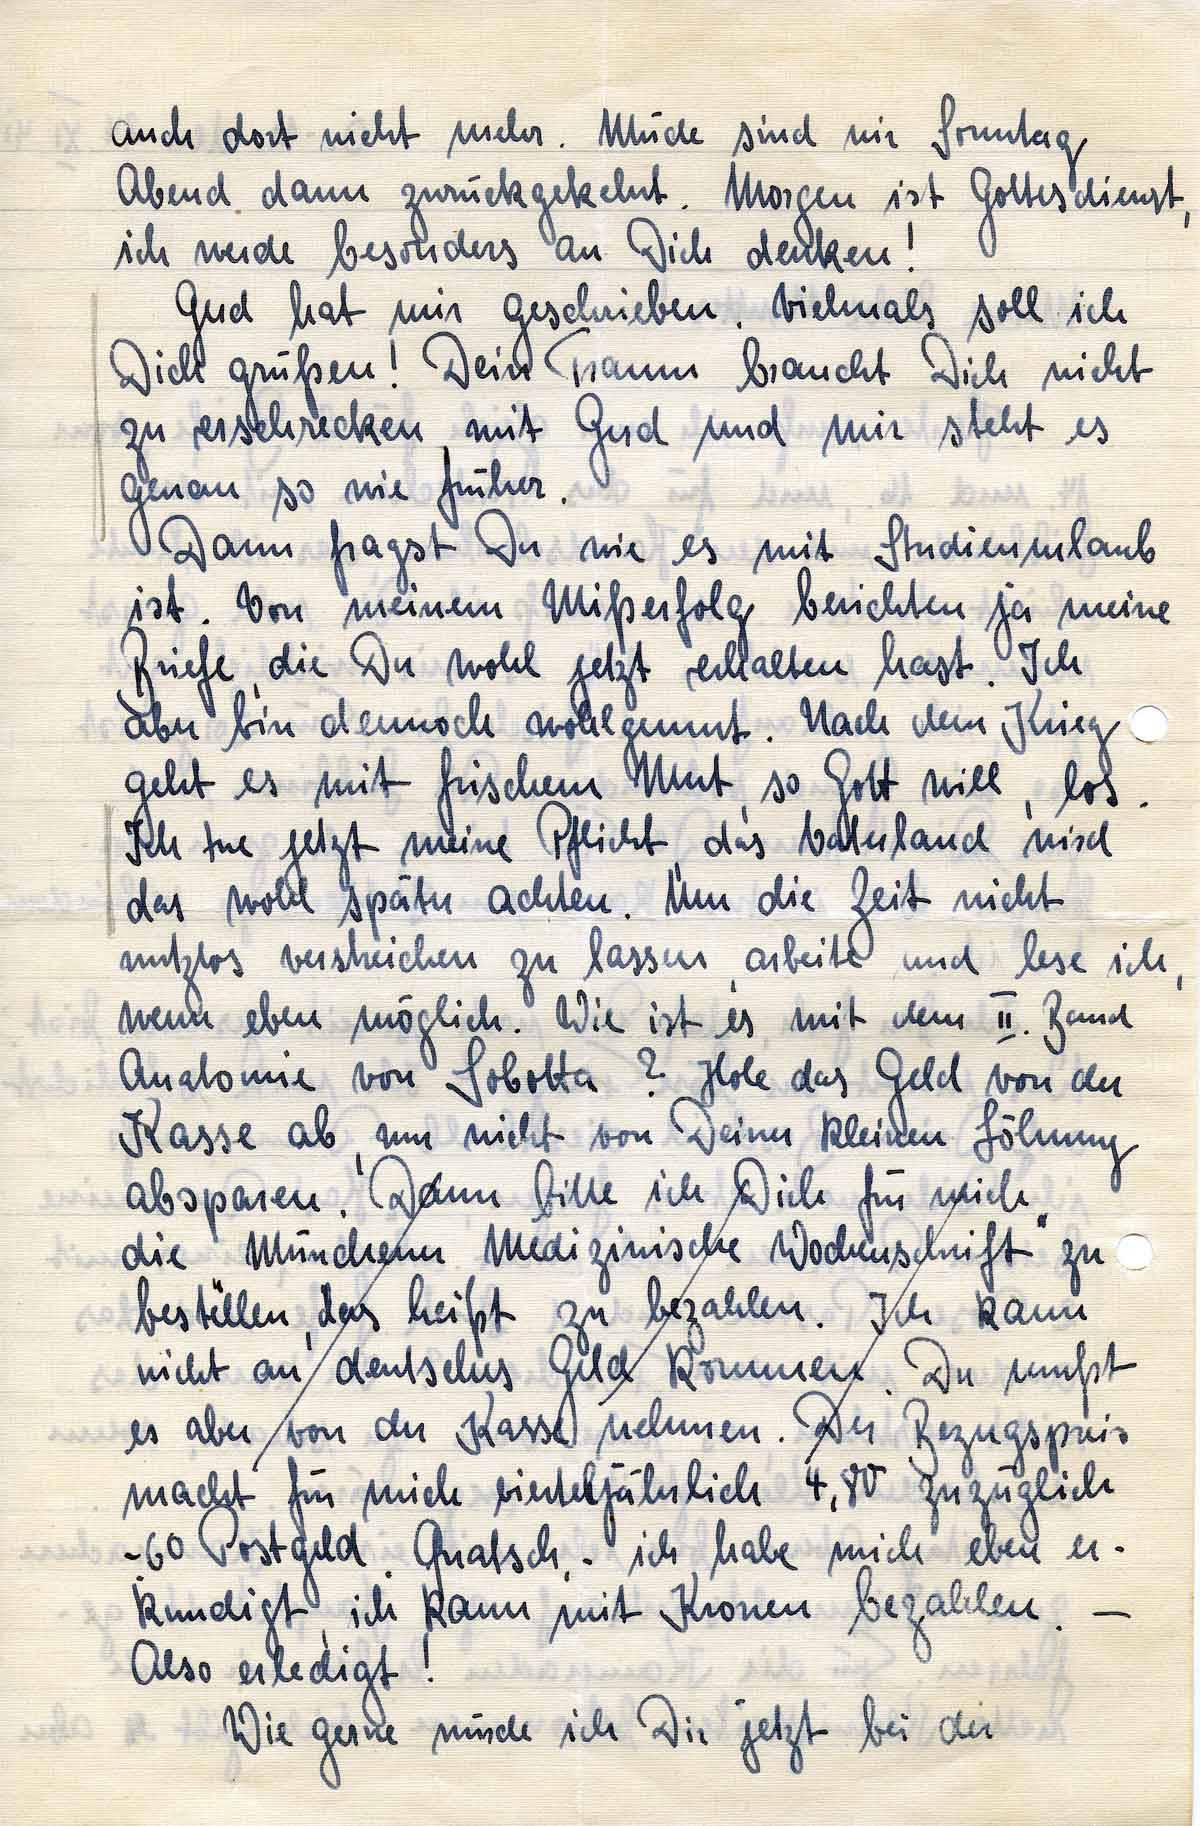 auch dort nicht mehr. Müde sind wir Sonntag
Abend dann zurückgekehrt. Morgen ist Gottesdienst,
ich werde besonders an Dich denken!
Gud hat mir geschrieben. Vielmals soll ich
Dich grüßen! Dein Traum braucht Dich nicht
zu erschrecken, mit Gud und mir steht es
genau so wie früher.
Dann fragst Du wie es mit Studienurlaub
ist. Von meinem Mißerfolg berichten ja meine
Briefe, die Du wohl jetzt erhalten hast. Ich
aber bin dennoch wohlgemut. Nach dem Krieg
geht es mit frischem Mut, so Gott will, los.
Ich tue jetzt meine Pflicht, das Vaterland wird
das wohl später achten. Um die Zeit nicht
nutzlos verstreichen zu lassen, arbeite und lese ich,
wenn eben möglich. Wie ist es mit dem II. Band
Anatomie von Sobotta? Hole das Geld von der
Kasse ab, um nicht von Deiner kleinen Löhnung
absparen. Dann bitte ich Dich für mich
die Münchener Medizinische Wochenschrift" zu
bestellen, das heißt zu bezahlen. Ich kann
nicht an deutsches Geld kommen. Du mußt
es aber von der Kasse nehmen. Der Bezugspreis
macht für mich vierteljährlich 4,80 zuzüglich
-60 Postgeld. Quatsch, - ich habe mich eben er-
kundigt, ich kann mit Kronen bezahlen. —
Also erledigt!
Wie gerne würde ich Dir jetzt bei der